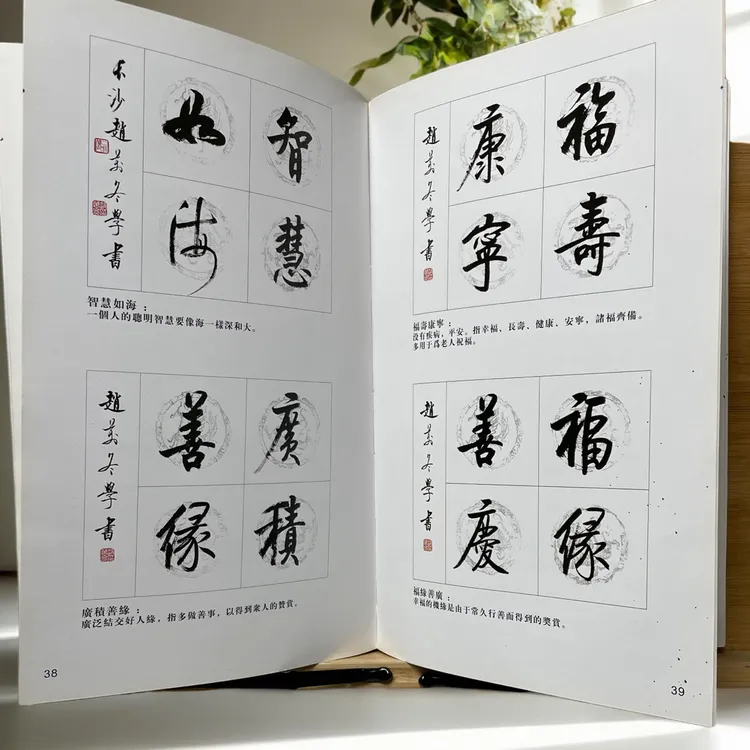 智慧
如海
长沙趙萬冬學書
智慧如海：
一個人的聰明智慧要像海一樣深和大。
廣積
善緣
趙萬冬學書
廣積善緣：
廣泛結交好人緣，指多做善事，以得到衆人的赞賞。
38
福壽
康寧
趙萬冬學書
福壽康寧：
没有疾病，平安。指幸福、長壽、健康、安寧，諸福齊備。
多用于爲老人祝福。
福緣
善慶
趙萬冬學書
福緣善廣：
幸福的機緣是由于常久行善而得到的奬賞。
39